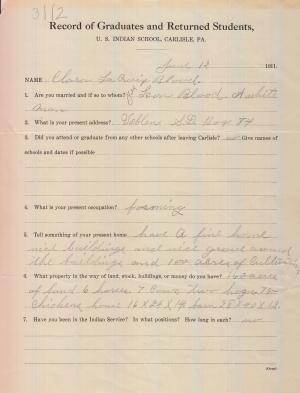 3112
Record of Graduates and Returned Students,
U. S. INDIAN SCHOOL, CARLISLE, PA.
June 12 1911.
NAME Blood
1. Are you married and if so to whom? Yes Leon Blood,
man
2. What is your present address? Veblen S.D. Box 84
3. Did you attend or graduate from any other schools after leaving Carlisle? no Give names of
schools and dates if possible
4. What is your present occupation? farming
5. Tell something of your present home have A fine home
nice buildings and nice grove around
the buildings and 100 acres of
6. What property in the way of land, stock, buildings, or money do you have? 160 acre
of land 6 horses 7 Cows two hogs 75
Chickens house 16 X 24 X 14 barn 28 X 40 X 12
7. Have you been in the Indian Service? In what positions? How long in each? no